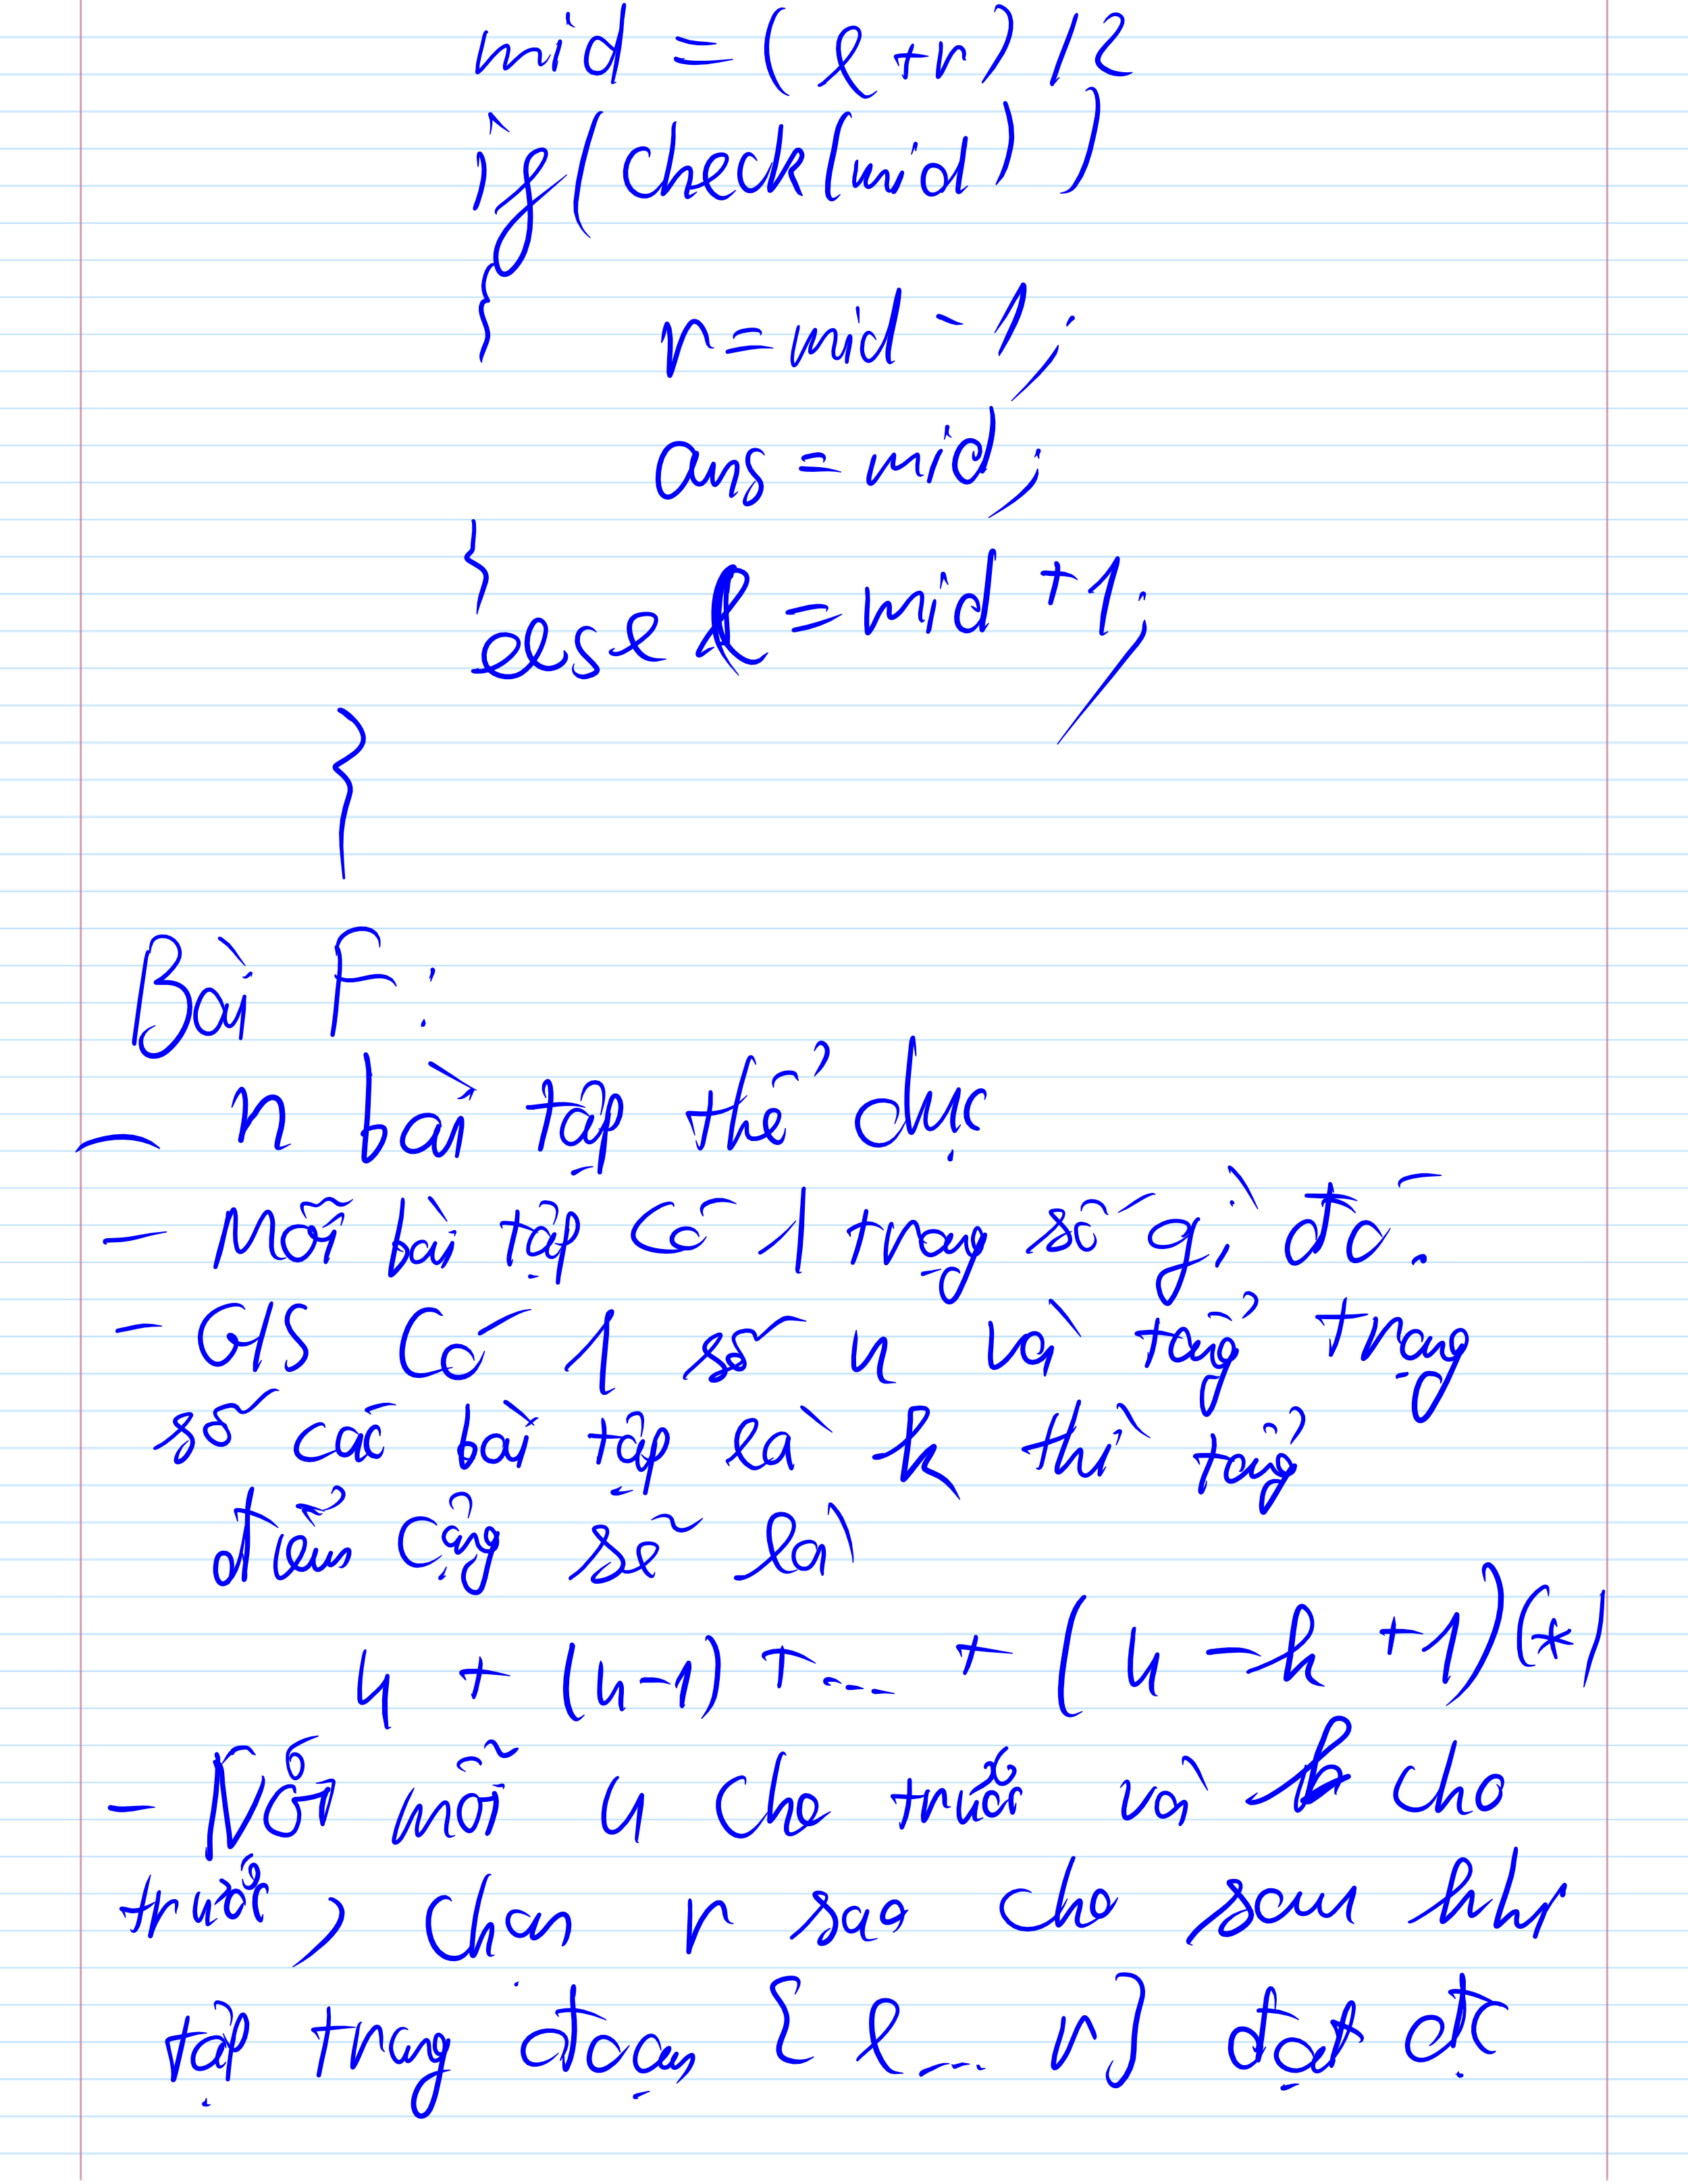 mid = (l + r) / 2
if (check(mid))
{ r = mid - 1;
ans = mid;
}
else l = mid + 1;
}
Bài F:
- n bài tập thể dục
- Mỗi bài tập có 1 trọng số gì đó.
- G/S có 1 số u và tổng trọng
số các bài tập là k thì tổng
điểm cộng sẽ là
u + (u-1) + ... + (u - k + 1) (*)
- Với mỗi u cho trước và k cho
trước, chọn r sao cho sau khi
tập trong đoạn {l ... r} đạt đc